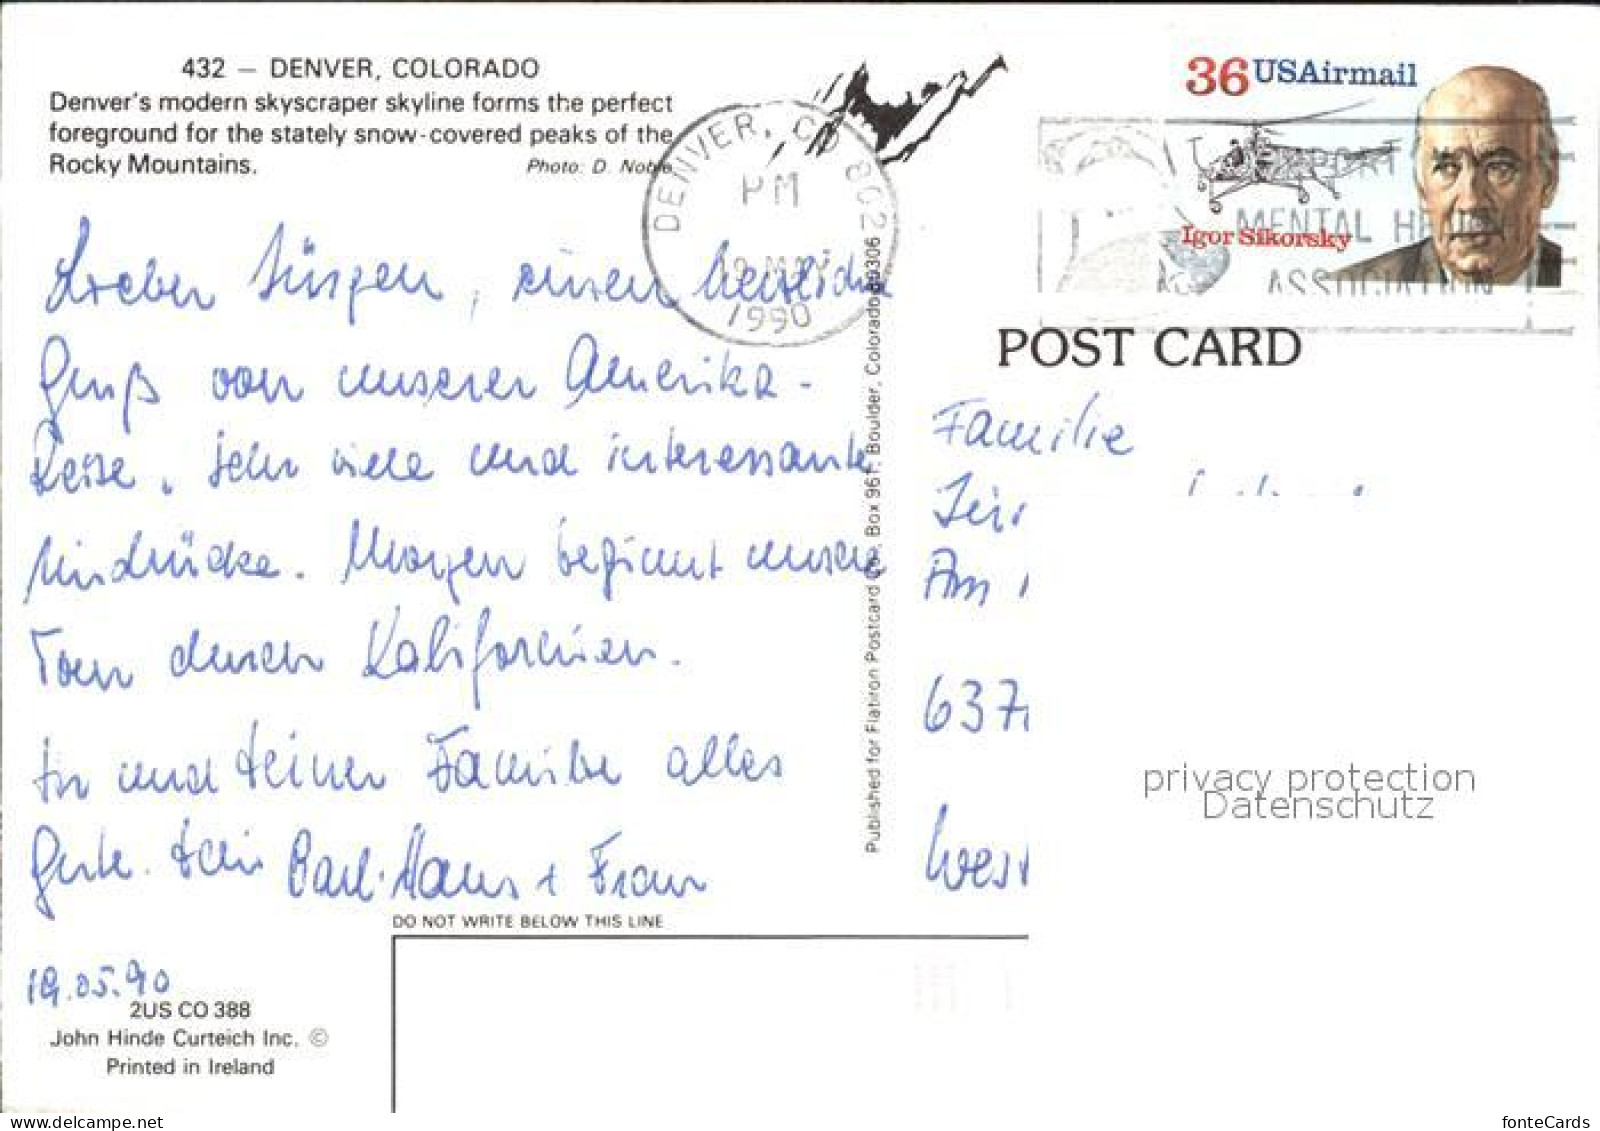 432 — DENVER, COLORADO
Denver's modern skyscraper skyline forms the perfect
foreground for the stately snow-covered peaks of the
Rocky Mountains.
Photo: D. Noble
DENVER, CO 802
PM
19 MAY
1990
36 USAirmail
Igor Sikorsky
SUPPORT
MENTAL HEALTH
ASSOCIATION
POST CARD
Lieber Jürgen, einen herzlichen
Gruß von unserer Amerika-
Reise. Sehr viele und interessante
Eindrücke. Morgen beginnt unsere
Tour durch Kalifornien.
Dir und deiner Familie alles
Gute. Dein Karl-Hans + Frau
19.05.90
Published for Flatiron Postcard Co., Box 961, Boulder, Colorado 80306
Familie
Am
637
West
privacy protection
Datenschutz
DO NOT WRITE BELOW THIS LINE
2US CO 388
John Hinde Curteich Inc. ©
Printed in Ireland
fonteCards